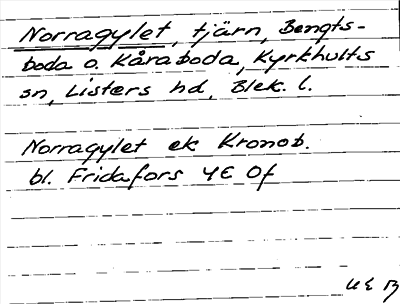 Norragylet, tjärn, Bengts-
boda o. Kåraboda, Kyrkhults
sn, Listers hd, Blek. l.
Norragylet ek Kronob.
bl. Fridafors 4E Of